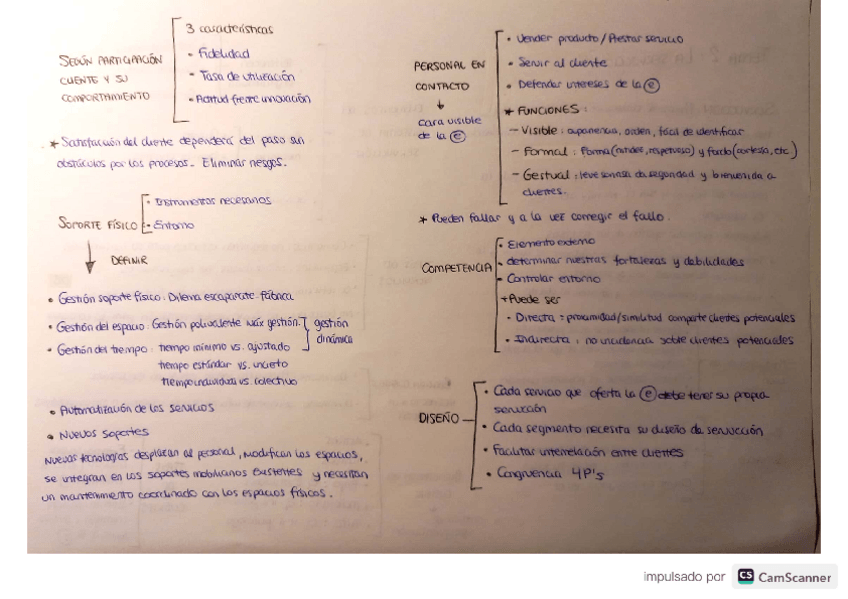 SEGÚN PARTICIPACIÓN
CLIENTE Y SU
COMPORTAMIENTO
3 características
- Fidelidad
- Tasa de utilización
- Actitud frente innovación
* Satisfacción del cliente dependerá del paso sin
obstáculos por los procesos. Eliminar riesgos.
SOPORTE FÍSICO
• Instrumentos necesarios
• Entorno
DEFINIR
• Gestión soporte físico: Dilema escaparate-fábrica
• Gestión del espacio: Gestión polivalente máx gestión.
• Gestión del tiempo: tiempo mínimo vs. ajustado
tiempo estándar vs. incierto
tiempo individual vs. colectivo
gestión
dinámica
• Automatización de los servicios
• Nuevos soportes
Nuevas tecnologías desplazan al personal, modifican los espacios,
se integran en los soportes mobiliarios existentes y necesitan
un mantenimiento coordinado con los espacios físicos.
PERSONAL EN
CONTACTO
cara visible
de la e
• Vender producto/Prestar servicio
• Servir al cliente
• Defender intereses de la e
* FUNCIONES:
- Visible: apariencia, orden, fácil de identificar
- Formal: Forma (, respetuoso) y fondo (cortesía, etc.)
- Gestual: leve sonrisa da seguridad y bienvenida a
clientes.
* Pueden fallar y a la vez corregir el fallo.
COMPETENCIA
- Elemento externo
- determinar nuestras fortalezas y debilidades
- Controlar entorno
* Puede ser
• Directa: proximidad/similitud comparte clientes potenciales
• Indirecta: no incidencia sobre clientes potenciales
DISEÑO
• Cada servicio que oferta la e debe tener su propia
servucción
• Cada segmento necesita su diseño de servucción
• Facilitar interrelación entre clientes
• Congruencia 4P's
impulsado por CS CamScanner